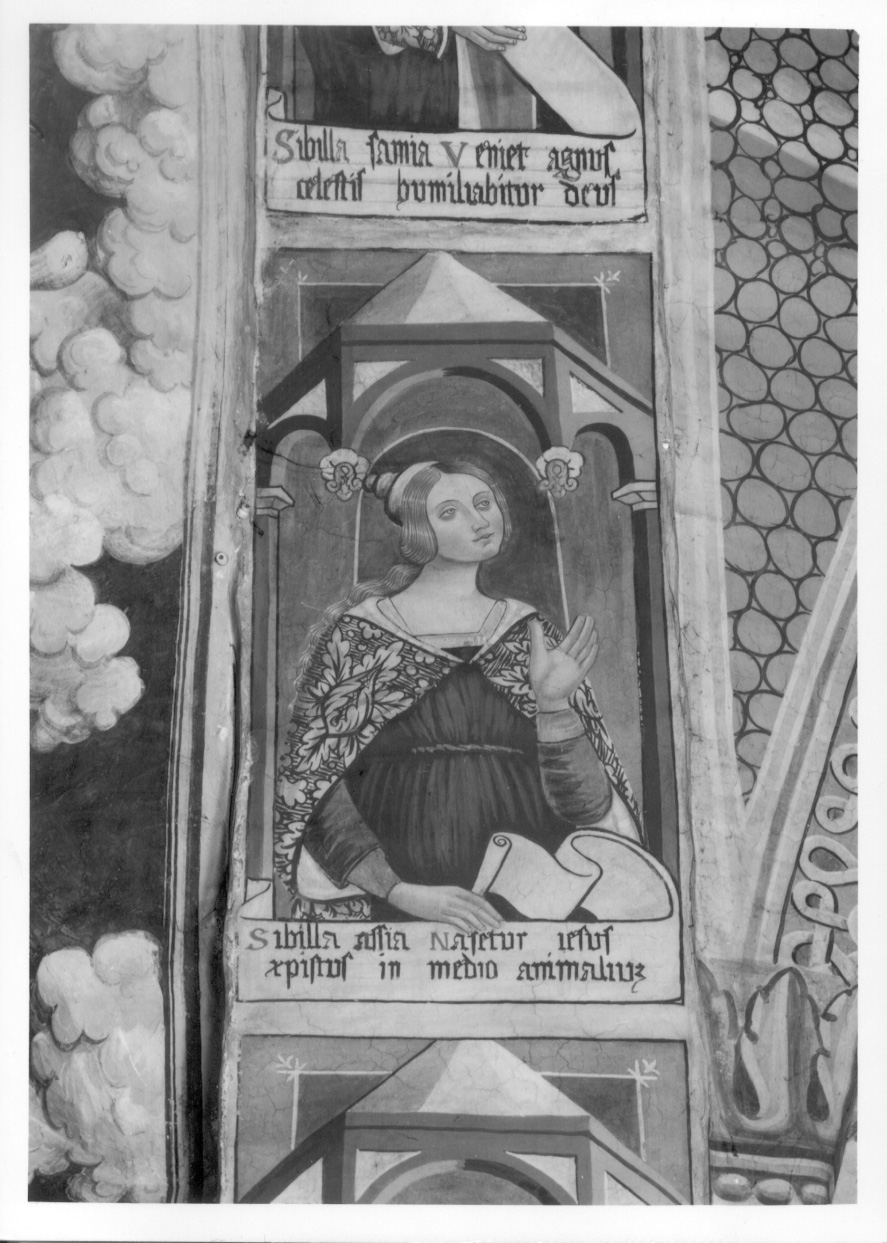 Sibilla samia Veniet agnus
celestis humiliabitur deus
Sibilla assia Nasetur iesus
xpistus in medio animaliuz